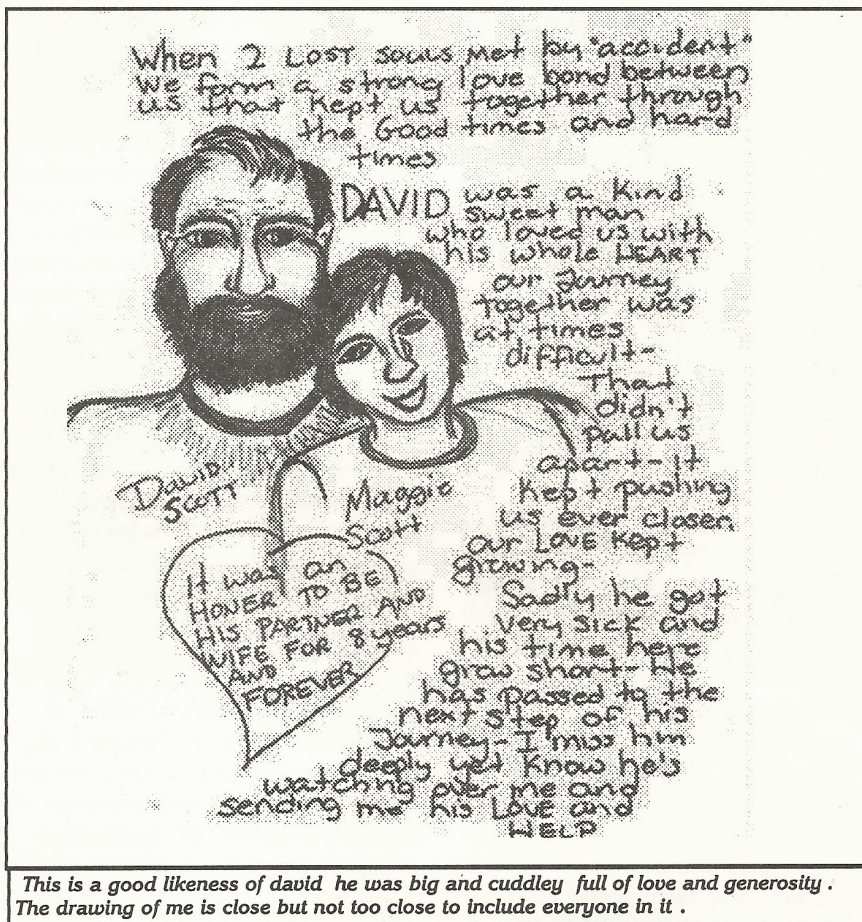 When 2 LOST SOULS Met by "accident"
We form a strong love bond between
us that Kept us together through
the Good times and hard
times
DAVID was a kind
sweet man
who loved us with
his whole HEART
our Journey
together was
at times
difficult-
That
didn't
pull us
apart-it
Kept pushing
us ever closer
our LOVE Kept
growing-
Sadly he got
very sick and
his time here
grow short-He
has passed to the
next step of his
Journey-I miss him
deeply yet Know he's
watching over me and
sending me his Love and
HELP
DAVID
SCOTT
Maggie
Scott
It was an
HONER TO BE
HIS PARTNER AND
WIFE FOR 8 years
AND
FOREVER
This is a good likeness of david he was big and cuddley full of love and generosity .
The drawing of me is close but not too close to include everyone in it .